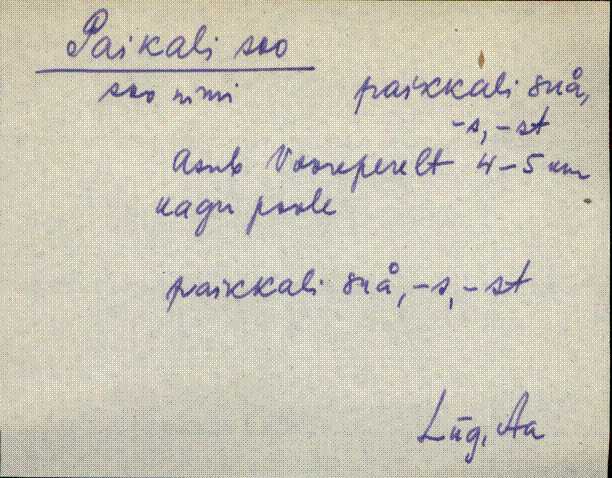 Paikali soo
soo nimi paikkali suå,
-s, -st
Asub Vooreperelt 4-5 km
kagu poole
paikkali suå, -s, -st
Lüg, Aa